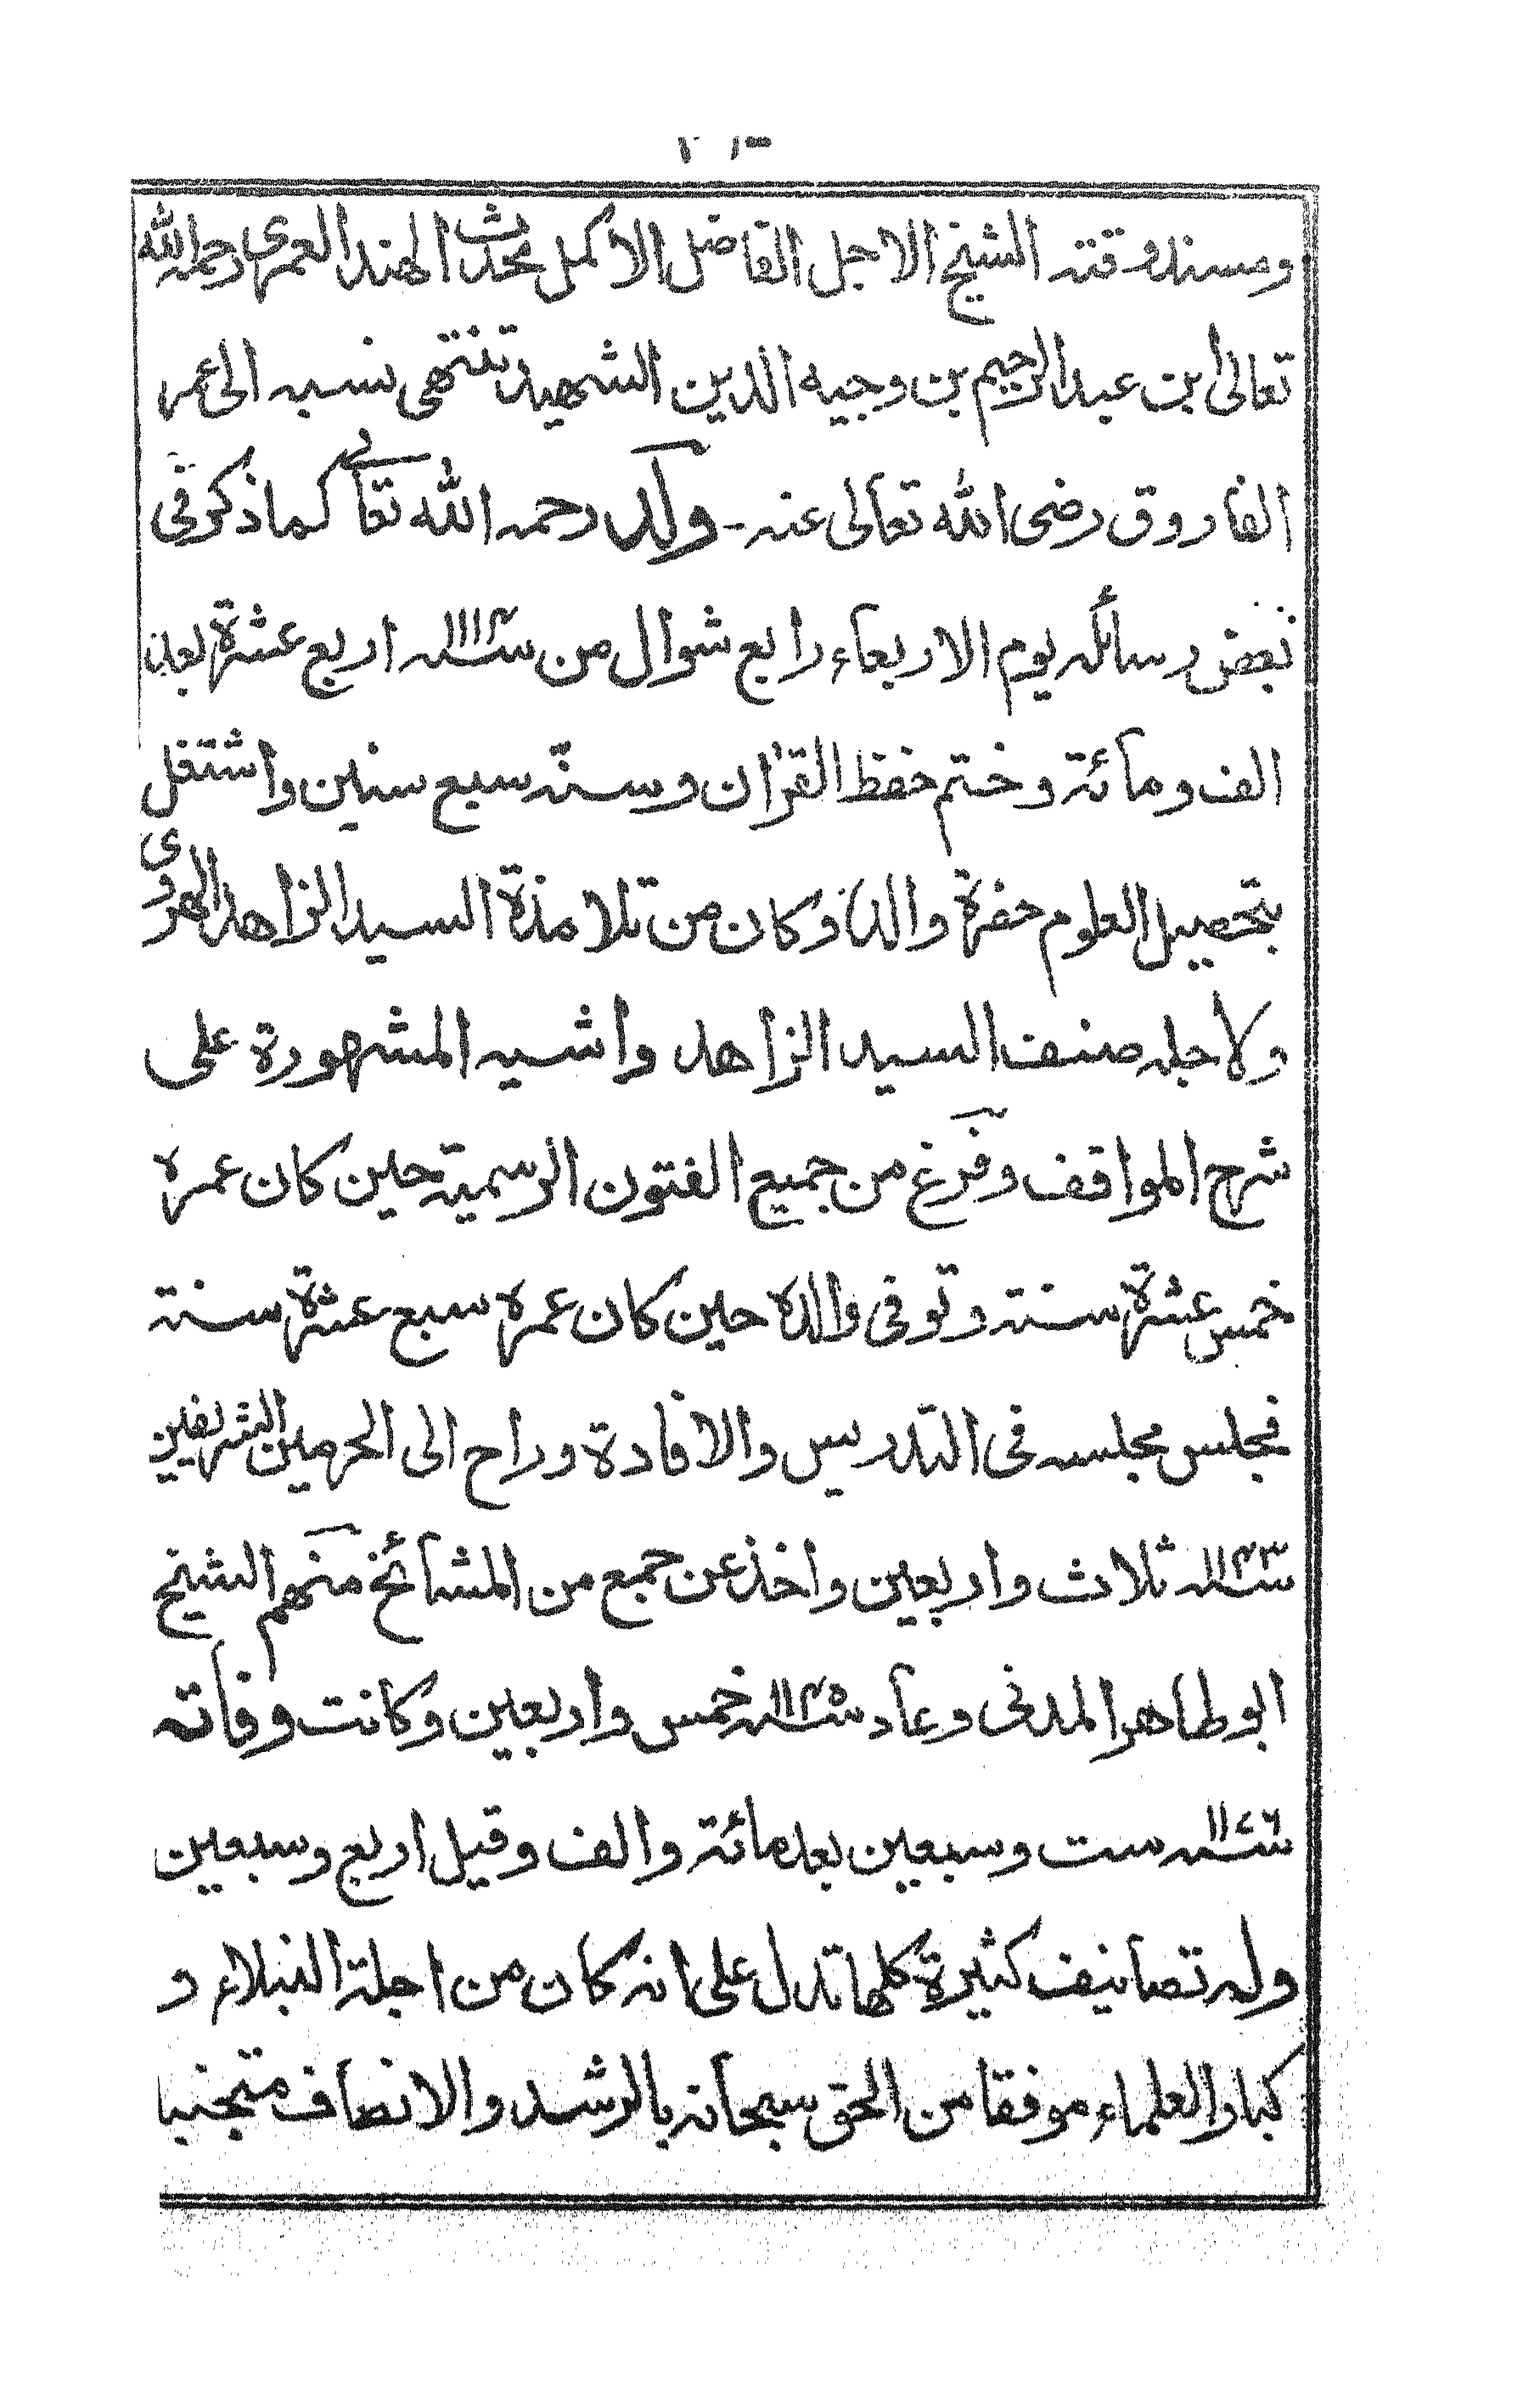 ومسند وقته الشيخ الاجل الفاضل الاكمل محدث الهند العمرى رحمه الله
تعالىٰ ابن عبد الرحيم بن وجيه الدين الشهيد تنتهى نسبه الى عمر
الفاروق رضى الله تعالى عنه - ولد رحمه الله تعالى كما ذكر فى
بعض رسائله يوم الاربعاء رابع شوال من سنه ۱۱۱۴ اربع عشرة بعد
الف ومائة وختم حفظ القرآن وسنه سبع سنين واشتغل
بتحصيل العلوم حضرة والده وكان من تلامذة السيد الزاهد الهروى
ولاجله صنف السيد الزاهد واشيه المشهورة على
شرح المواقف وفرغ من جميع الفنون الرسمية حين كان عمره
خمس عشرة سنة وتوفى والده حين كان عمره سبع عشرة سنة
فجلس مجلسه فى التدريس والافادة وراح الى الحرمين الشريفين
سنه ۱۱۴۳ ثلاث واربعين واخذ عن جمع من المشائخ منهم الشيخ
ابو طاهر المدنى وعاد سنه ۱۱۴۵ خمس واربعين وكانت وفاته
سنه ۱۱۷۶ ست وسبعين بعد مائة والف وقيل اربع وسبعين
وله تصانيف كثيرة كلها تدل على انه كان من اجلة النبلاء و
كبار العلماء موفقا من الحق سبحانه بالرشد والانصاف متجنبا